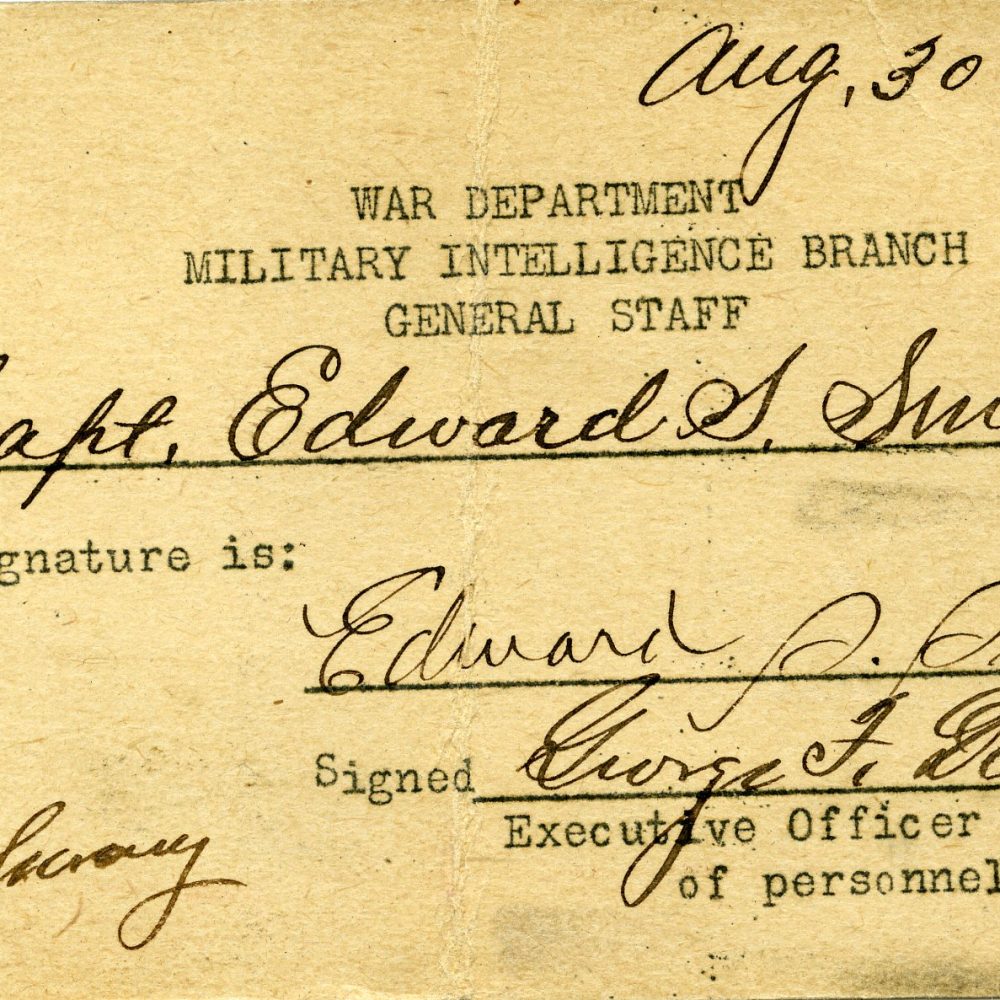 Aug. 30
WAR DEPARTMENT
MILITARY INTELLIGENCE BRANCH
GENERAL STAFF
apt. Edward S.
gnature is:
Edward S.
Signed George F.
Executive Officer
of personnel